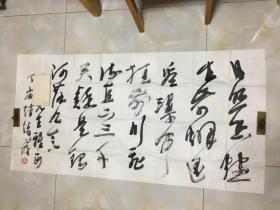 日照香爐
生紫烟遥
看瀑布
挂前川飛
流直下三千
尺疑是銀
河落九天